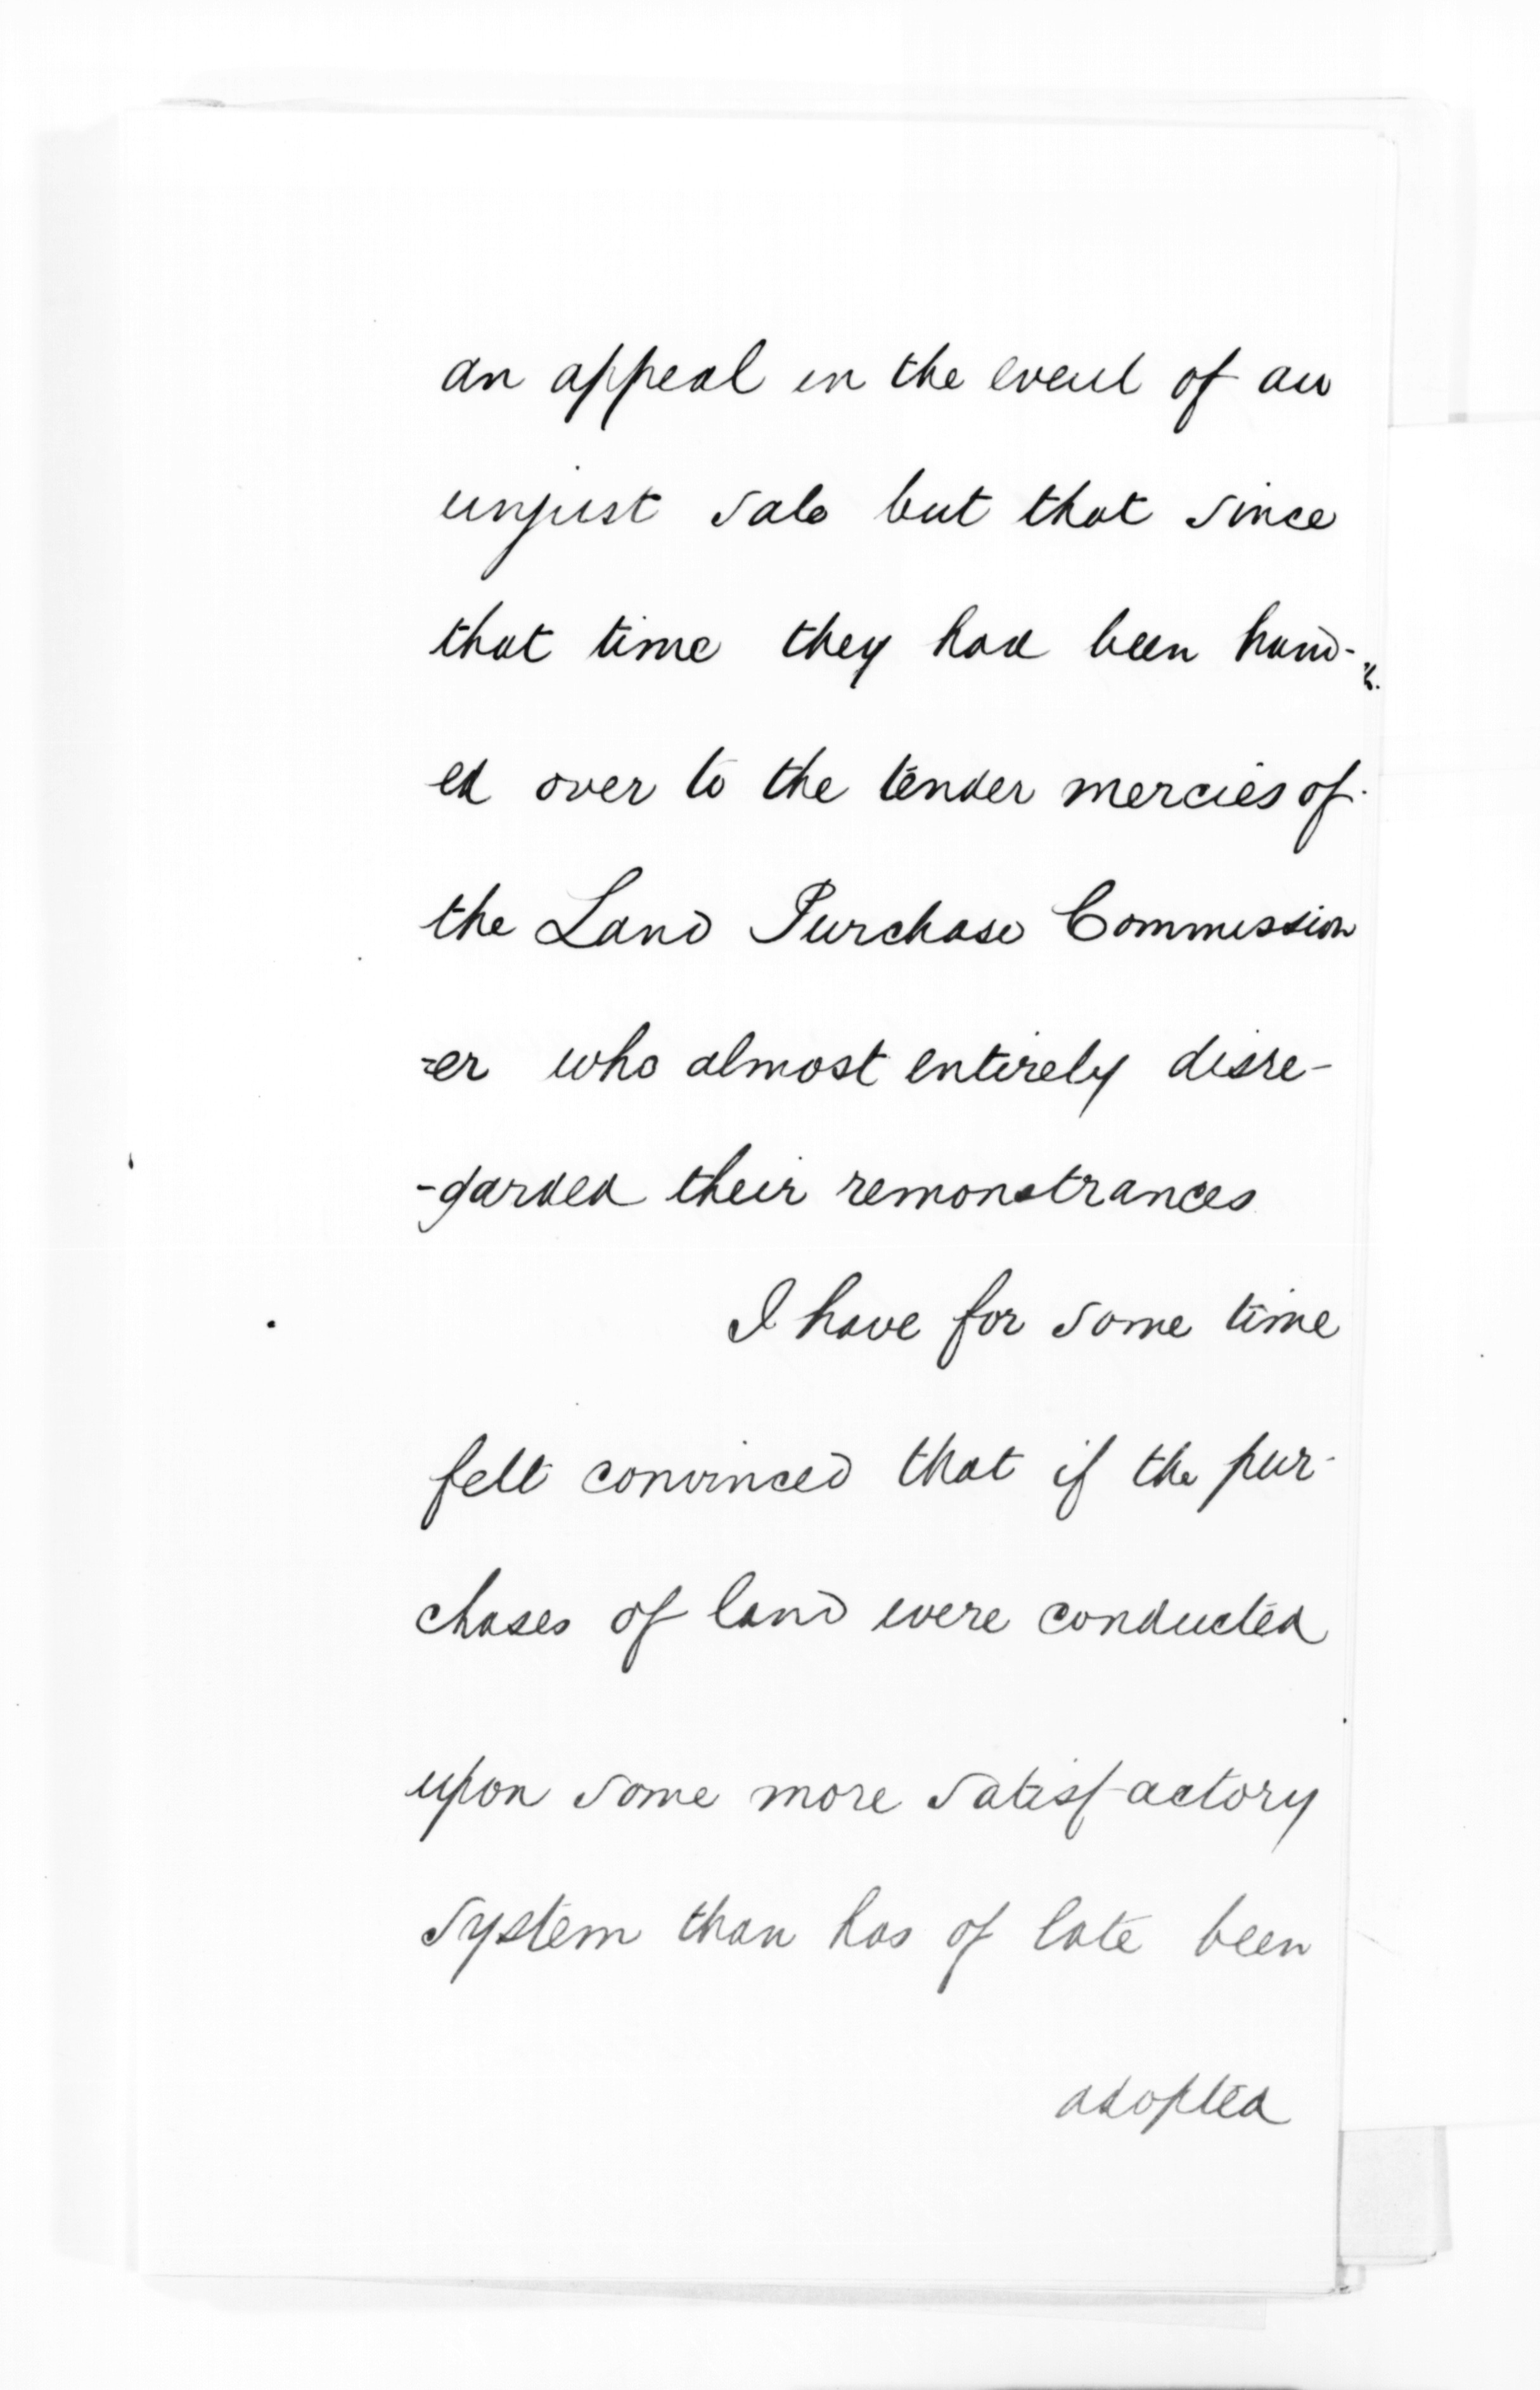 an appeal in the event of an
unjust sale but that since
that time they had been hand-
ed over to the tender mercies of
the Land Purchase Commission
=er who almost entirely disre-
-garded their remonstrances
I have for some time
felt convinced that if the pur-
chases of land were conducted
upon some more satisfactory
system than has of late been
adopted